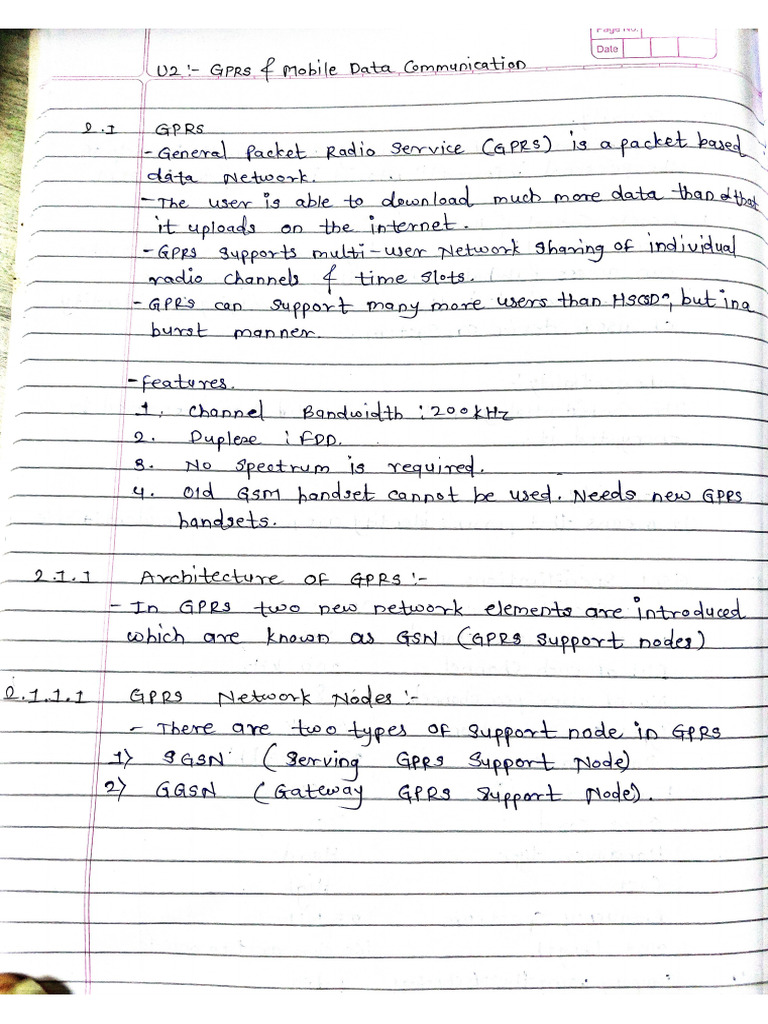 Page No.
Date
U2:- GPRS & Mobile Data Communication
2.1 GPRS
- General Packet Radio Service (GPRS) is a packet based
data Network.
- The user is able to download much more data than that
it uploads on the internet.
- GPRS supports multi-user Network sharing of individual
radio channels & time slots.
- GPRS can support many more users than HSCSD, but in a
burst manner.
- features.
1. Channel Bandwidth : 200kHz
2. Duplexe : FDD.
3. No spectrum is required.
4. Old GSM handset cannot be used. Needs new GPRS
handsets.
2.1.1 Architecture of GPRS :-
- In GPRS two new network elements are introduced
which are known as GSN (GPRS support nodes)
2.1.1.1 GPRS Network Nodes :-
- There are two types of support node in GPRS
1) SGSN (Serving GPRS Support Node)
2) GGSN (Gateway GPRS Support Node).